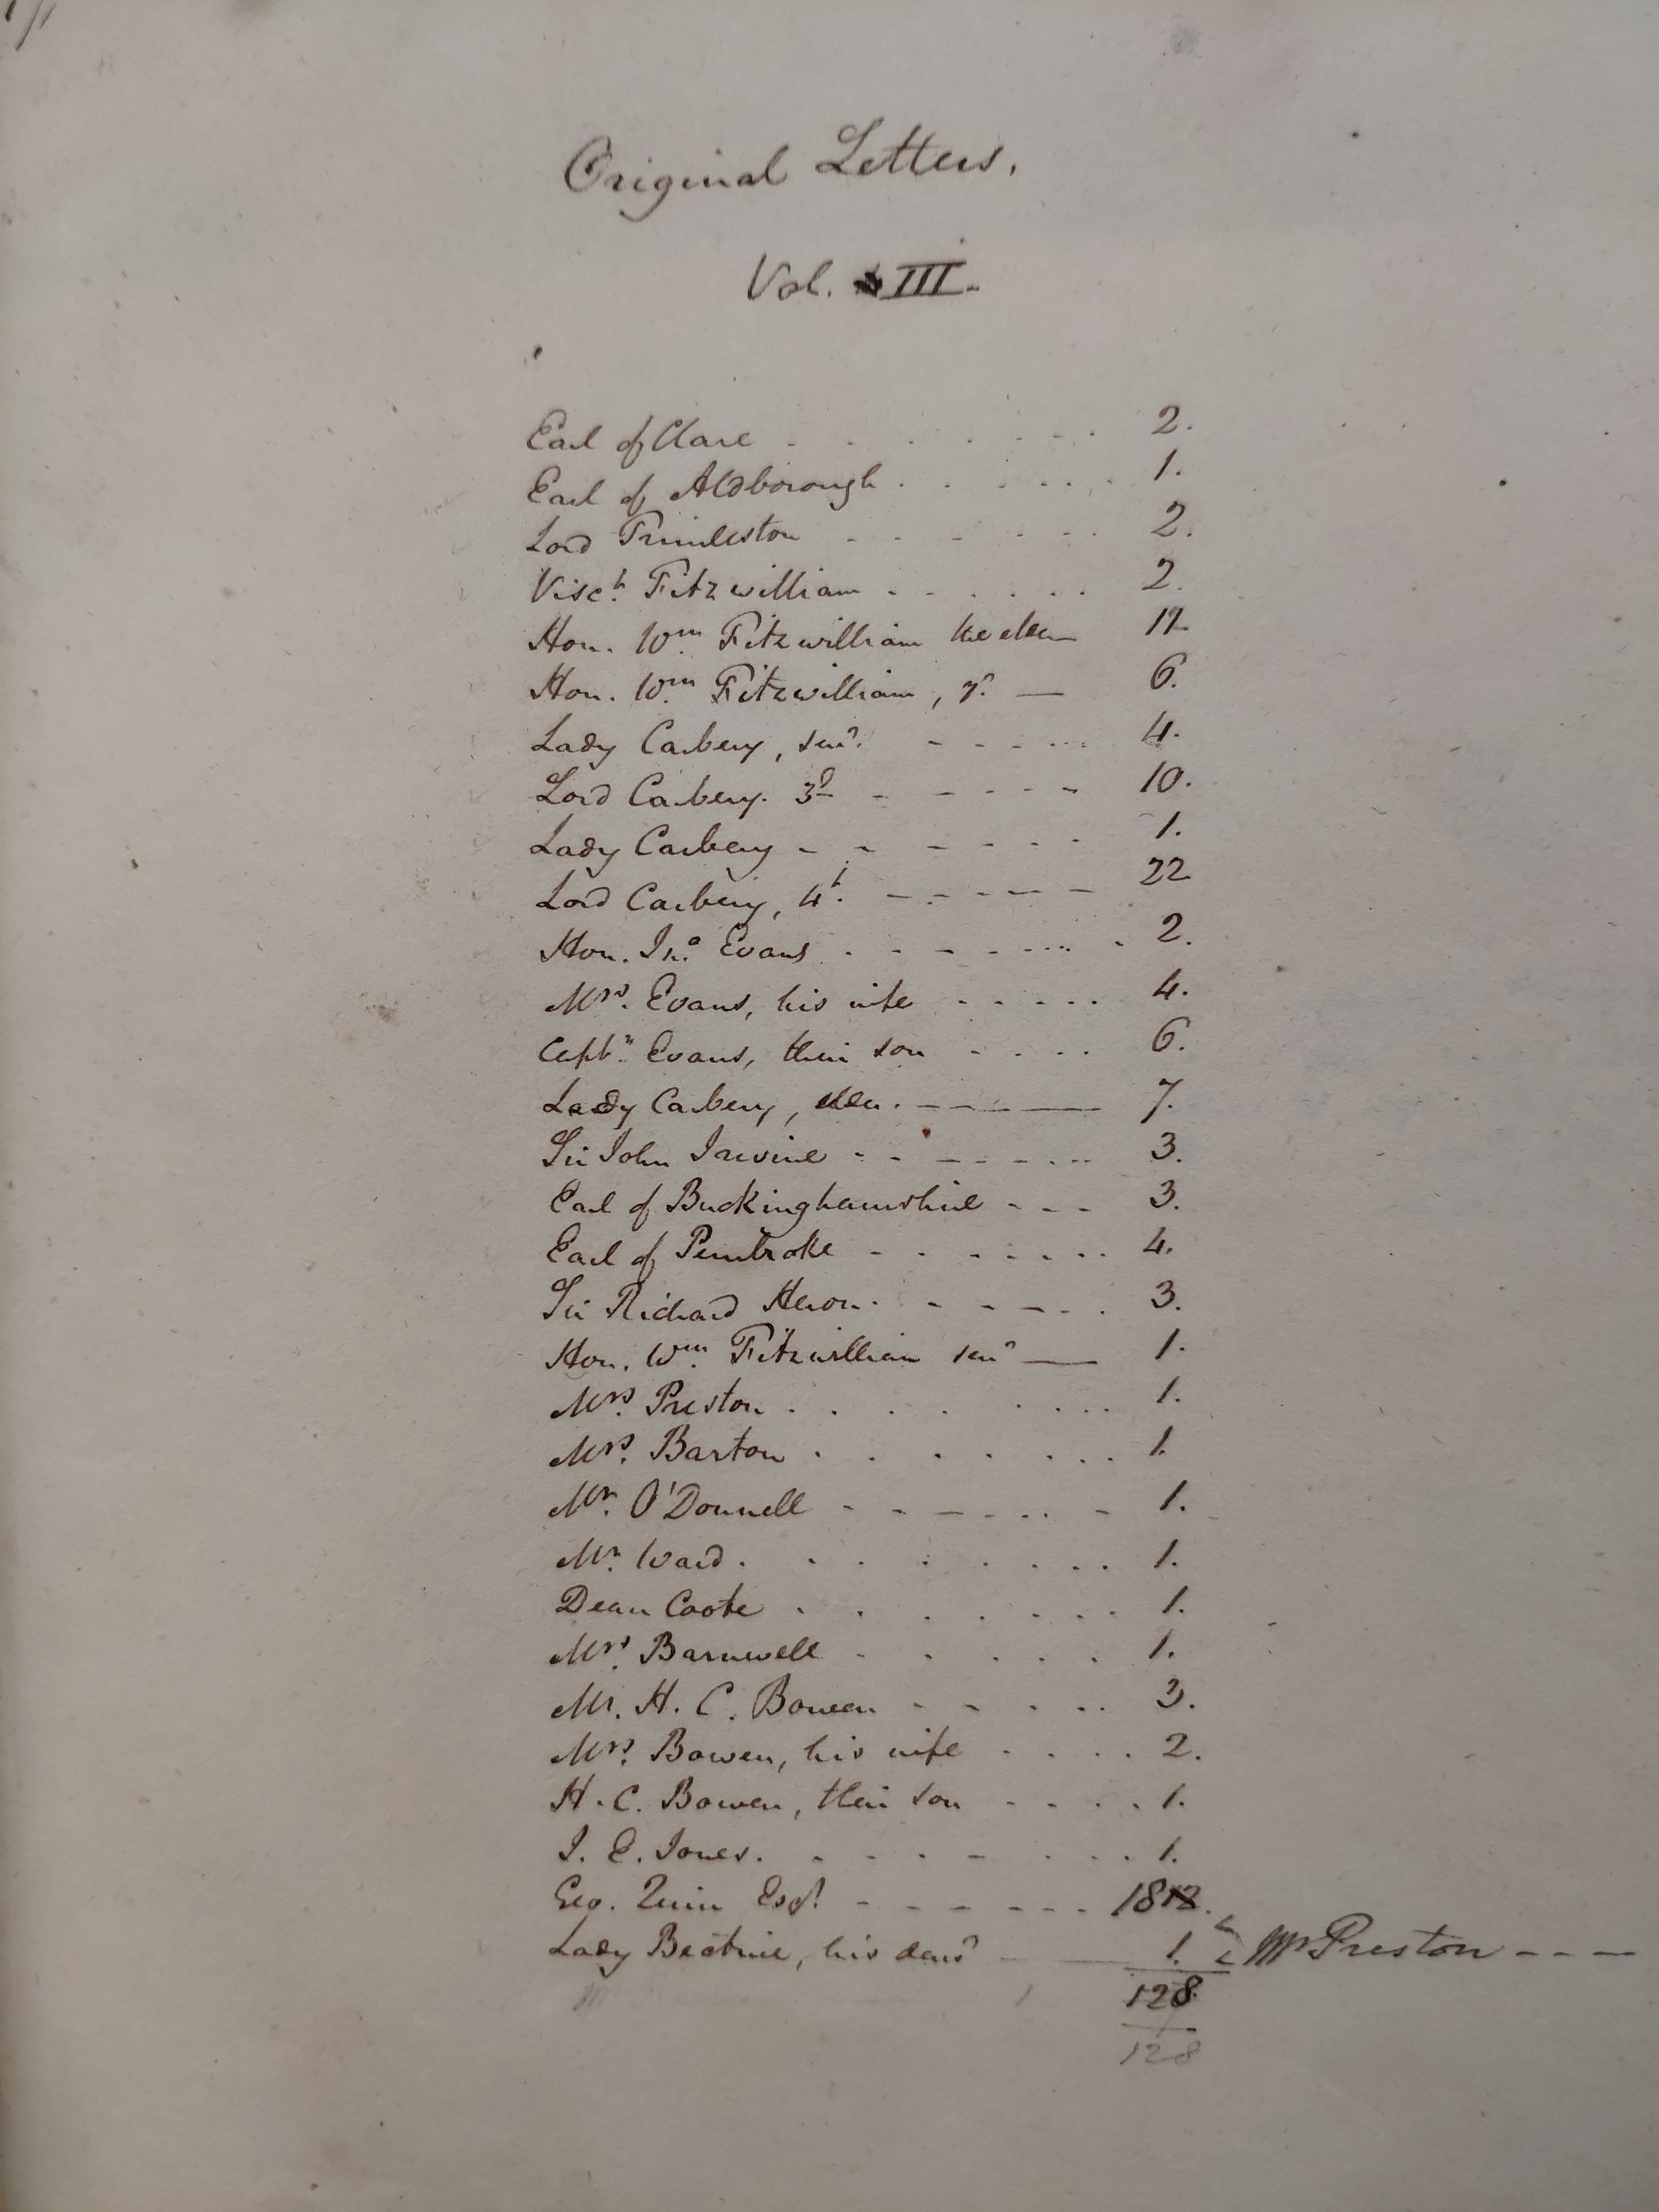 Original Letters.
Vol. III.
Earl of Clare - - - - - - - 2.
Earl of Aldborough . . . . . . 1.
Lord Trimleston - - - - - - 2.
Visct. Fitzwilliam - - - - - - 2.
Hon. Wm. Fitzwilliam the elder — 12
Hon. Wm. Fitzwilliam, yr. — 6.
Lady Carbery, senr. - - - - - 4.
Lord Carbery. 3d - - - - - - 10.
Lady Carbery - - - - - - 1.
Lord Carbery, 4t. - - - - - - 22
Hon. Jno. Evans . - - - - - - 2.
Mrs. Evans, his wife - - - - - 4.
Captn. Evans, their son - - - - 6.
Lady Carbery, elder. - — — 7.
Sir John Irvine - - - - - - - 3.
Earl of Buckinghamshire - - - 3.
Earl of Pembroke - - - - - - - 4.
Sir Richard Heron. - - - - - 3.
Hon. Wm. Fitzwilliam senr — 1.
Mrs. Preston . . . . . . . . 1.
Mrs. Barton . . . . . . . . 1.
Mr. O'Donnell - - - - - - - 1.
Mr. Ward . . . . . . . . 1.
Dean Coote . . . . . . . 1.
Mrs. Barnwell - . . . . . 1.
Mr. H. C. Bowen - - - . . 3.
Mrs. Bowen, his wife . . . . 2.
H. C. Bowen, their son - - - - 1.
J. E. Jones. . - - - - . . . 1.
Geo. Quin Esqr. - - - - - - - 18
Lady Bective, his daur — 1. Mr Preston - - -
128
128